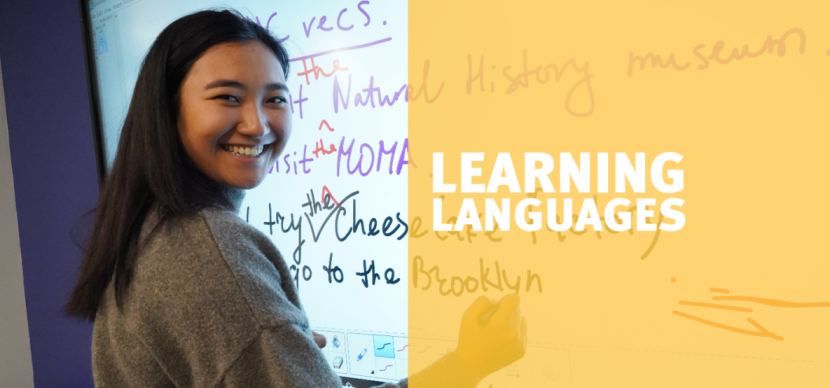 recs.
the
Natural History museum
visit the MOMA
try the Cheesecake Factory
go to the Brooklyn
LEARNING
LANGUAGES